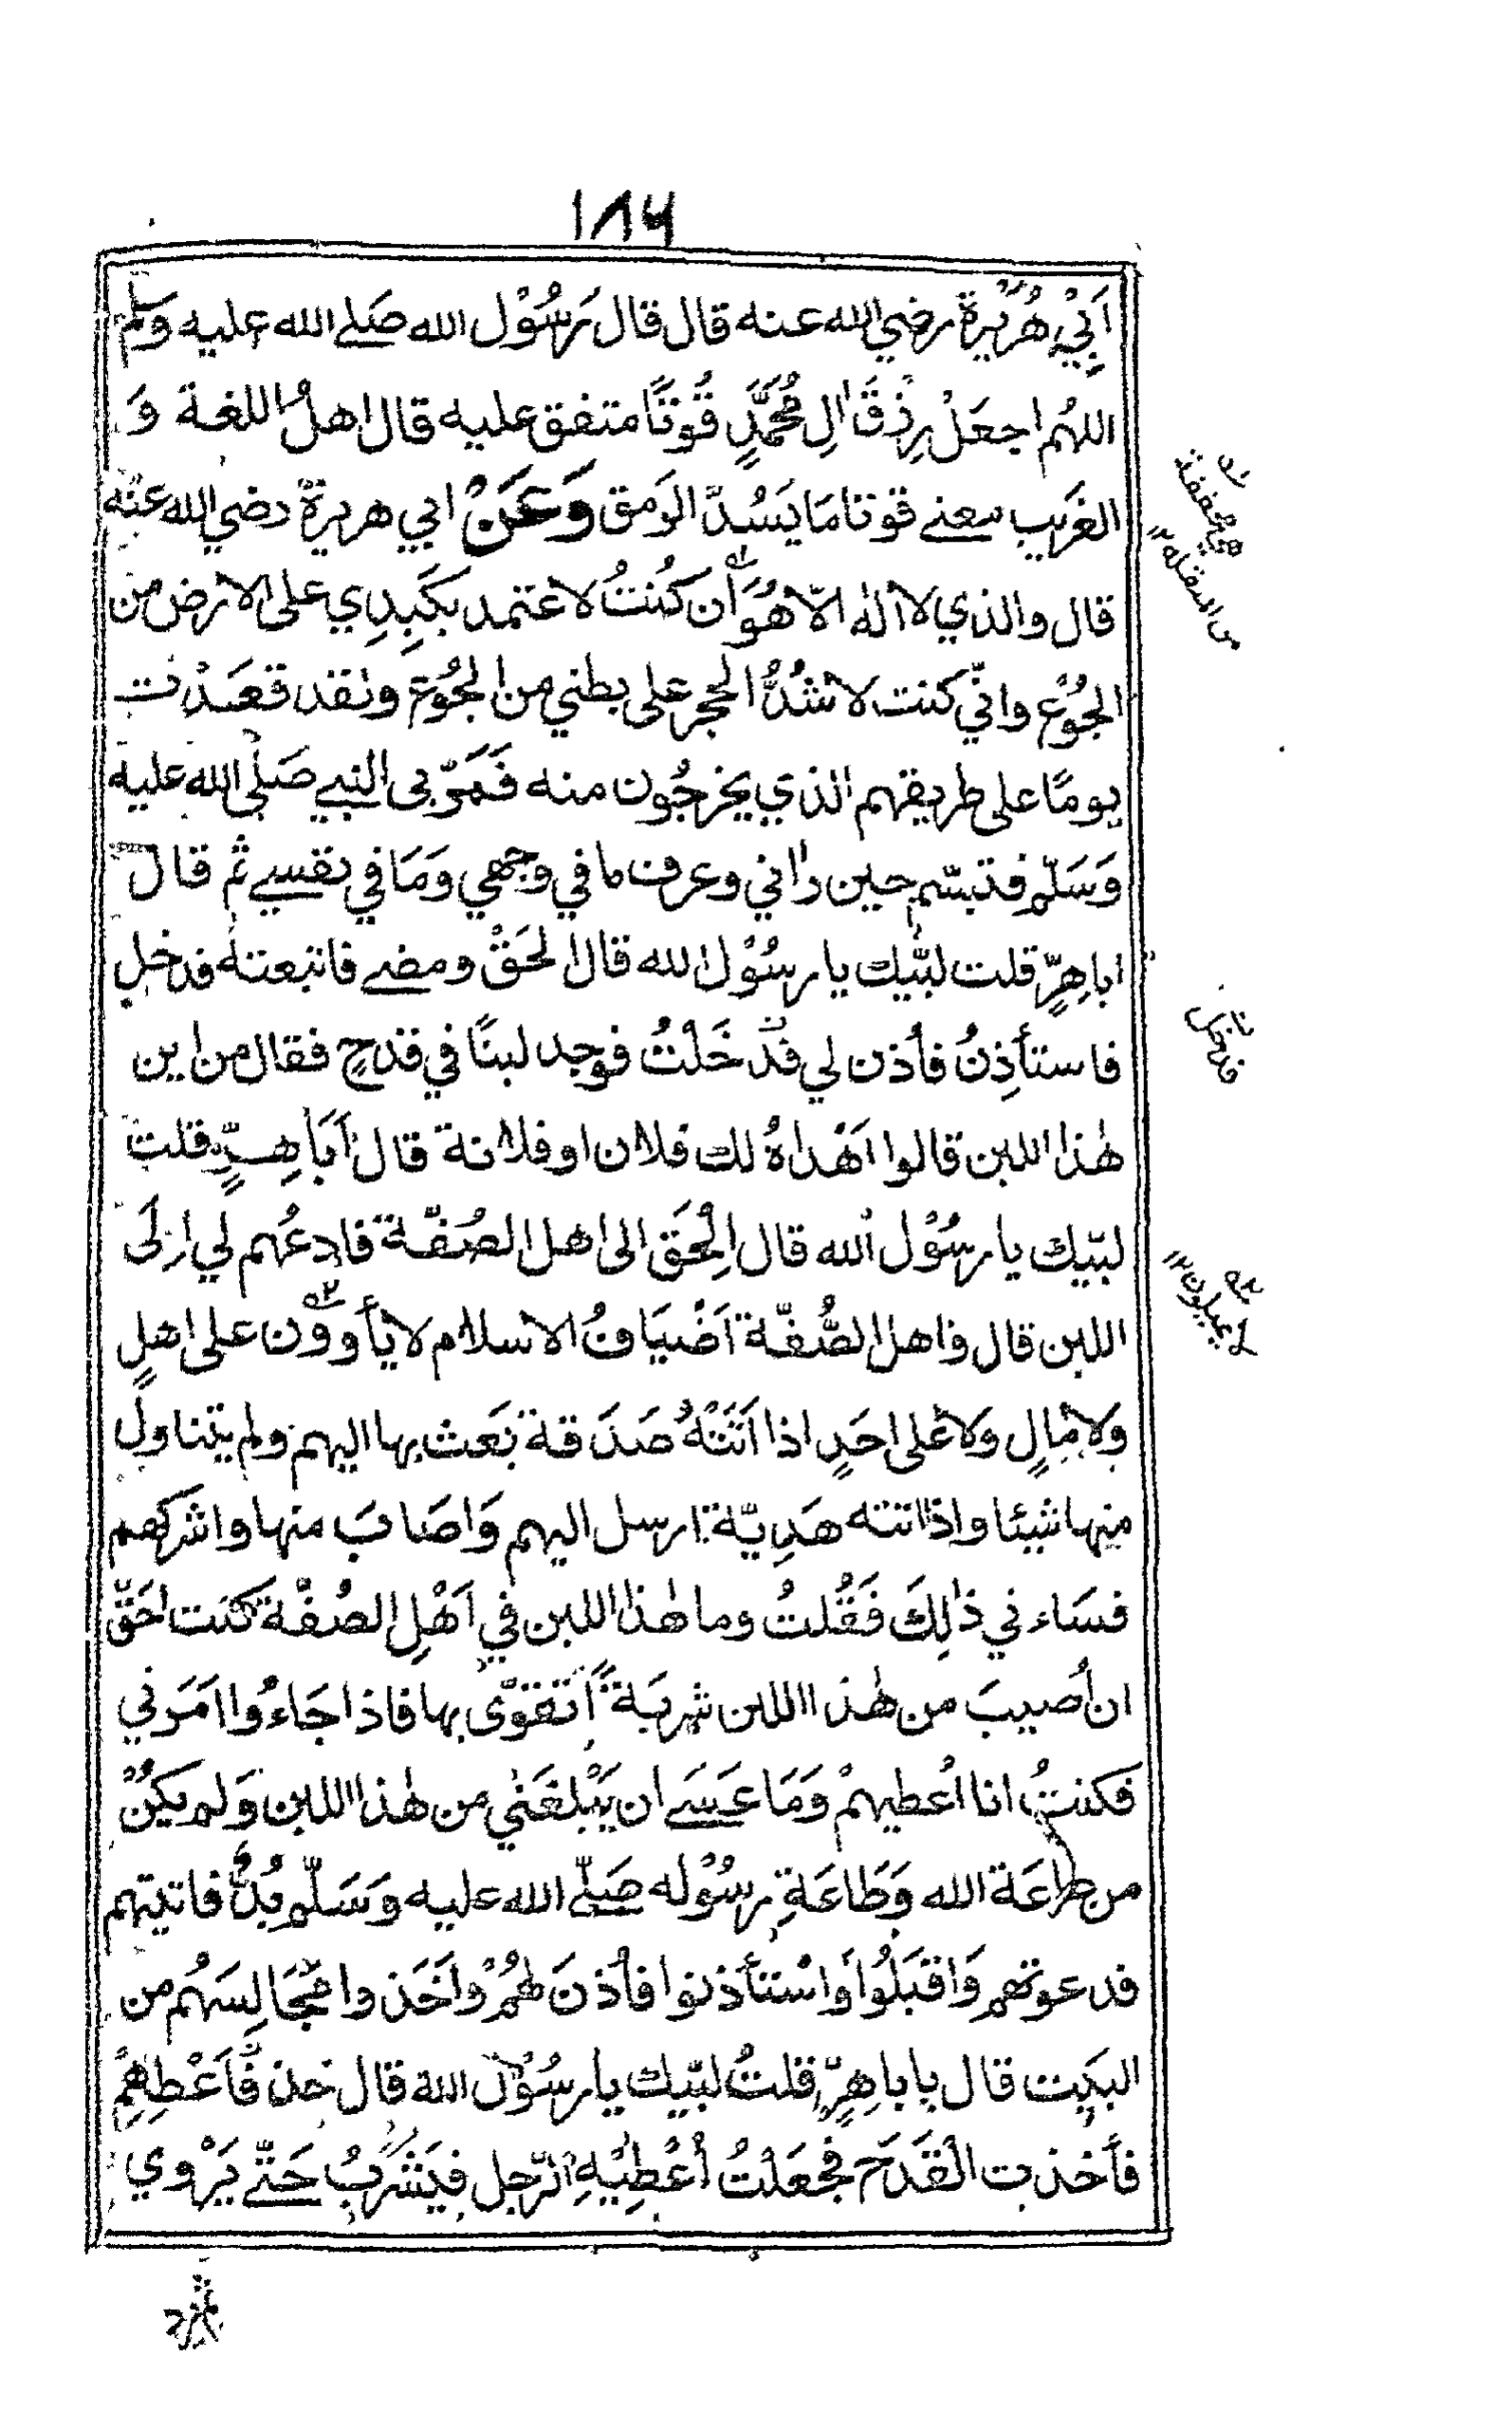 ١٨٦
اَبِيْ هُرَيْرَةَ رضي الله عنه قال قال رَسُوْل الله صَلى الله عليه وَسلم
اللهُم اجعَلْ رِزْقَ اٰلِ مُحَمَّدٍ قُوْتًا متفق عليه قال اهلُ اللغة وَ
الغَرِيب معنى قوتا مَا يَسُدّ الرَمق وَعَنْ ابي هريرة رضي الله عنه
قال والذي لا اله الّا هُوَ أن كُنتُ لاعتمد بكَبِدِي على الارض من
الجُوْع وانّي كنت لاشُدُّ الحجر على بطني من الجُوْع ولقد قعَدْت
يومًا على طريقهم الذي يخرجُون منه فَمَرّ بي النبي صَلى الله عليه
وَسَلّم فتبسّم حين راٰني وعرف ما في وجهي وَمَا في نفسي ثم قال
اباهِرٍّ قلت لبّيك يا رسُوْل الله قال الحَقْ ومضى فاتبعته فدخل
فاستأذِنُ فأذن لي فدَخَلْتُ فوجد لبنًا في قدحٍ فقال من اين
هٰذا اللبن قالوا اَهْداهُ لك فلان او فلانة قال اَبَا هِرٍّ قلت
لبّيك يا رسُوْل الله قال اِلْحَق الى اهل الصُفّة فادعُهم لي
اللبن قال واهل الصُّفّة اَضْيَافُ الاسلام لا يأوون على اهلٍ
ولا مالٍ ولا على احَدٍ اذا اَتَتْهُ صَدَقة بَعَث بها اليهم ولم يتناول
منها شيئا واذا اتته هَدِيّة ارسل اليهم وَاصَابَ منها واشركهم
فسَاءني ذٰلِكَ فَقُلتُ وما هٰذا اللبن في اَهْلِ الصُفّة كنت احَقّ
ان اُصيبَ من هٰذا اللبن شربَةً اَتقوّى بها فاذا جَاءُوا امَرَني
فكنتُ انا اُعطيهمْ وَمَا عَسَى ان يَبْلغَني من هٰذا اللبن وَلم يكنْ
من طاعَة الله وَطَاعَةِ رسُوْله صَلّى الله عليه وَسَلّم بُدٌّ فاتيتهم
فدعوتهم وَاقبَلُوا وَاسْتأذنوا فأذنَ لهُمْ وَاخَذوا مَجَالِسَهُم من
البَيت قال يا باهِرٍّ قلتُ لبّيك يا رسُوْل الله قال خذ فاَعْطِهِمْ
فأخذت القَدَحَ فجَعَلْتُ اُعْطِيْهِ الرّجل فيَشْرَبُ حَتّى يَرْوي
هي مخففة
من المثقلة ١٢
فدخل
لا يميلون ١٢